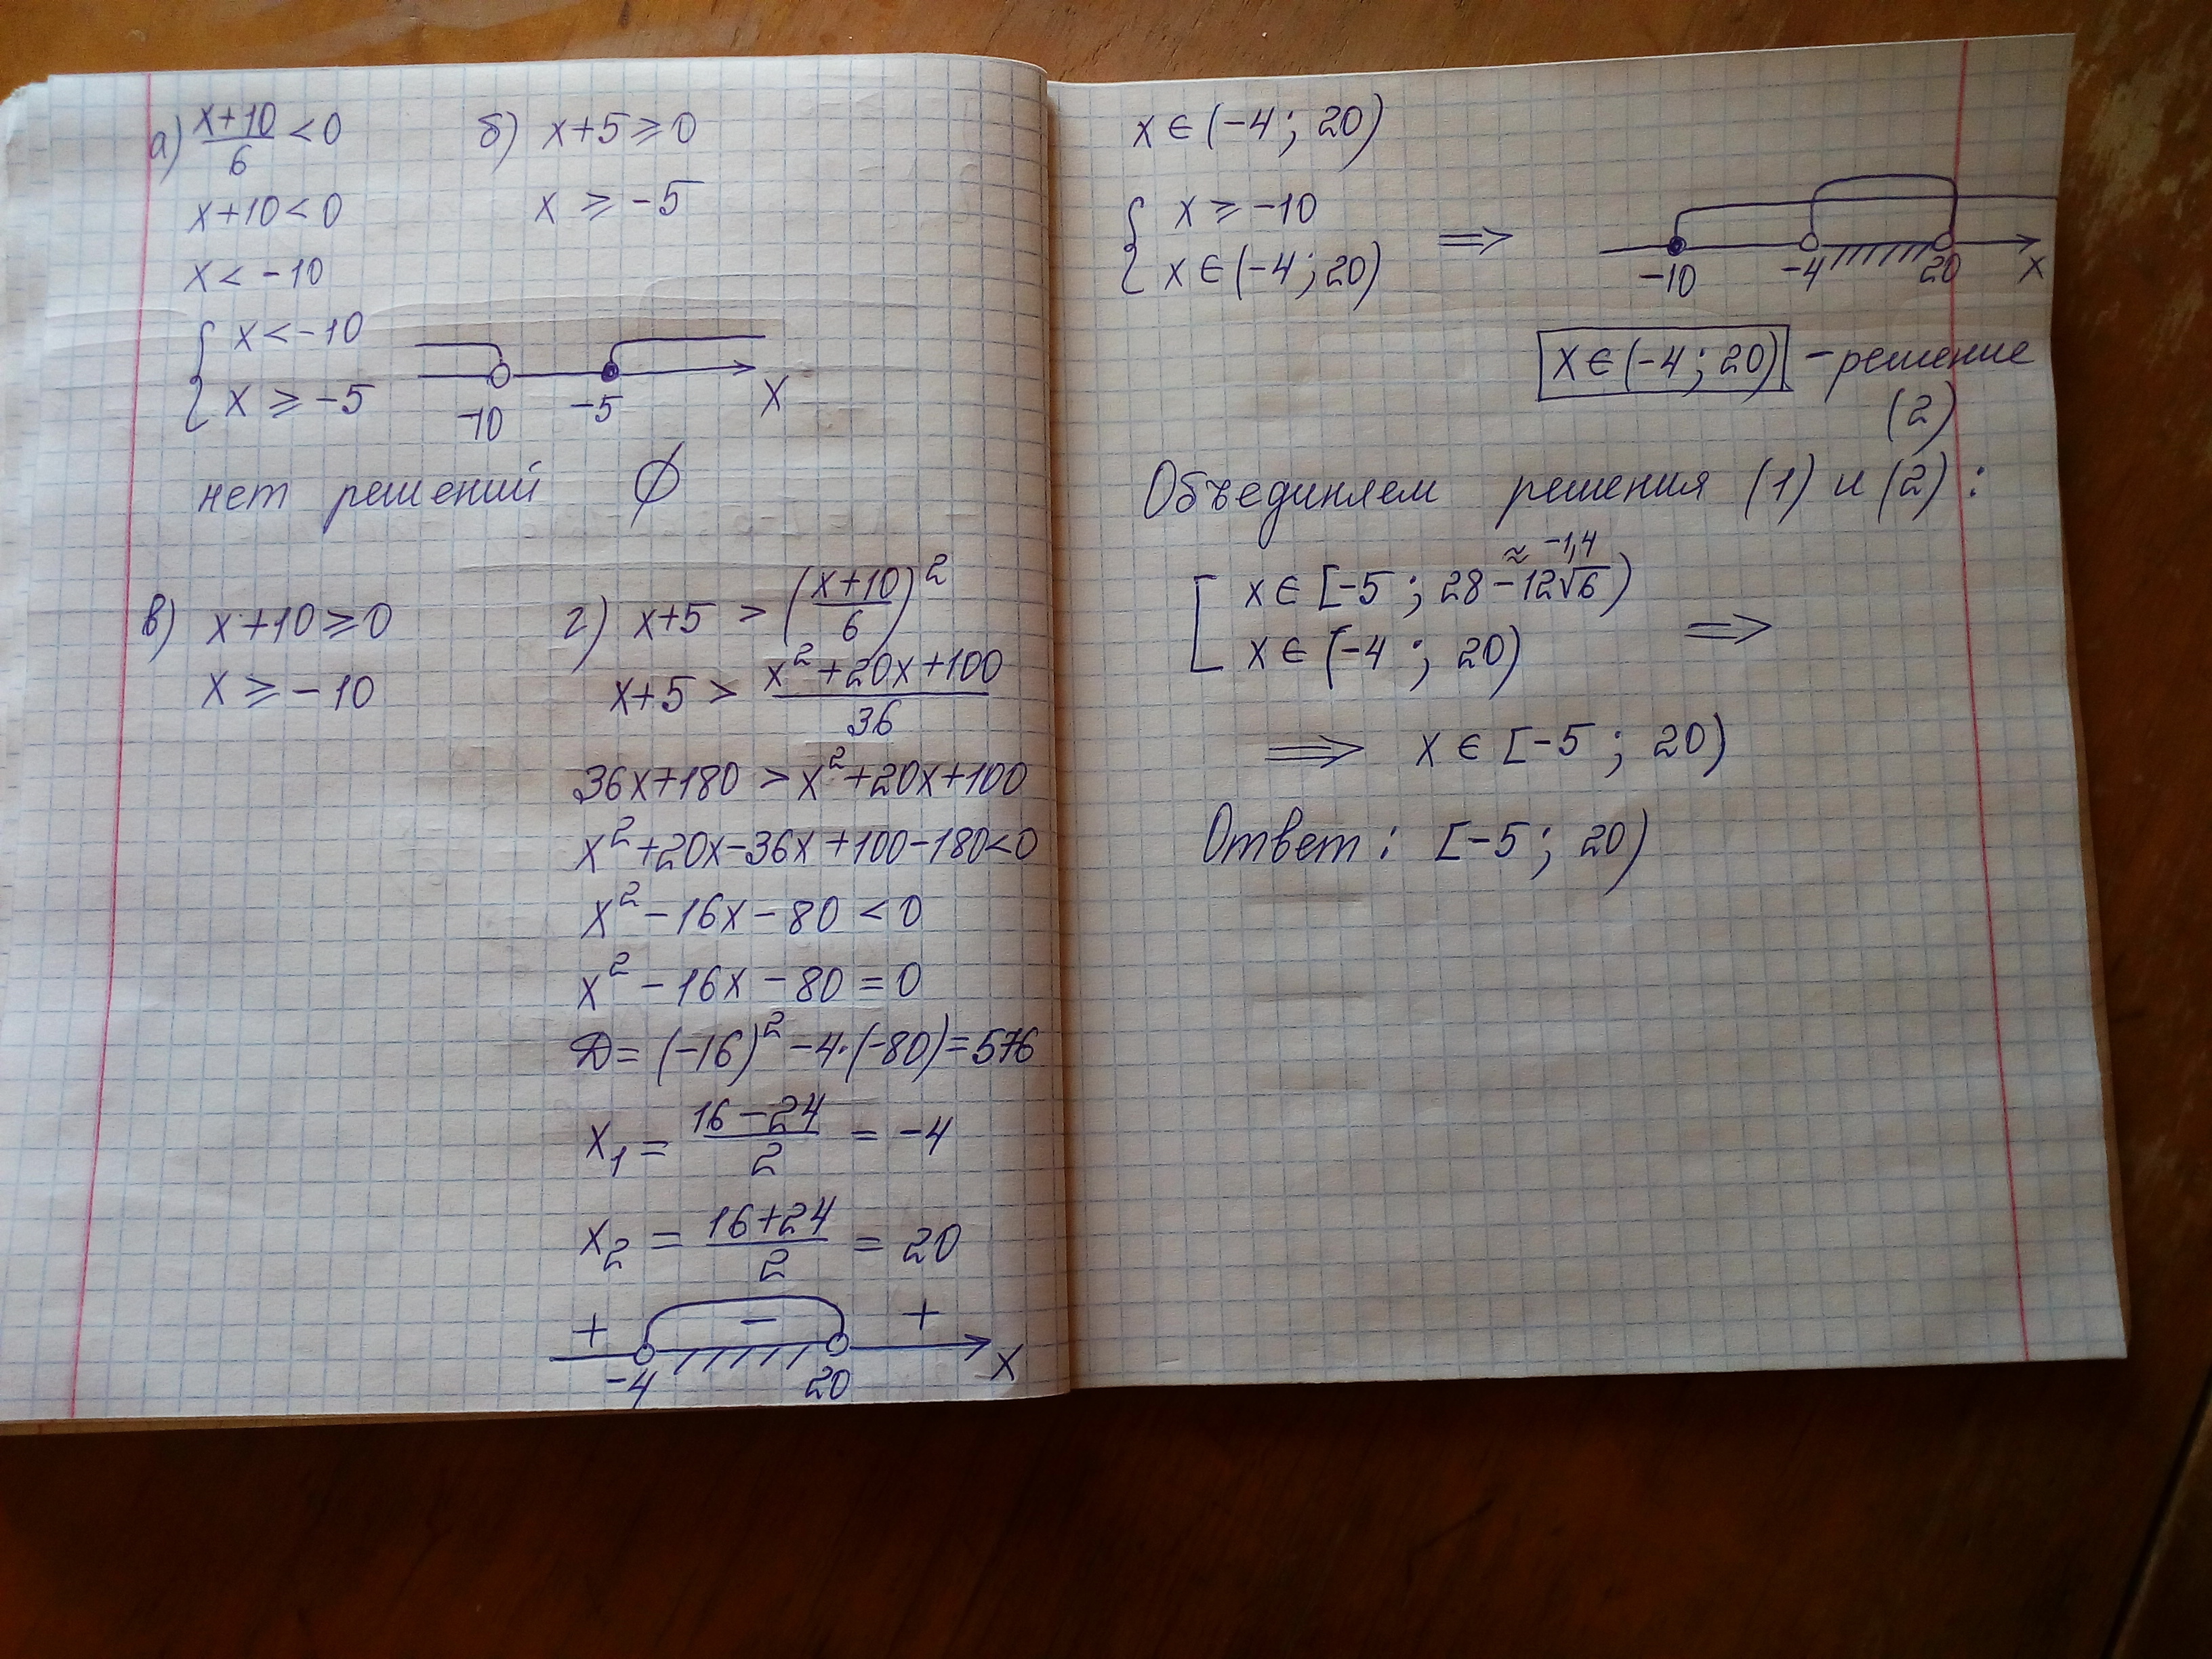 а) (x+10)/6 < 0
x+10 < 0
x < -10
{ x < -10
x ⩾ -5
-10 -5 x
нет решений ∅
б) x+5 ⩾ 0
x ⩾ -5
в) x+10 ⩾ 0
x ⩾ -10
г) x+5 > ((x+10)/6)²
x+5 > (x²+20x+100)/36
36x+180 > x²+20x+100
x²+20x-36x+100-180<0
x² - 16x - 80 < 0
x² - 16x - 80 = 0
D = (-16)² - 4·(-80) = 576
x₁ = (16-24)/2 = -4
x₂ = (16+24)/2 = 20
+ - +
-4 20 x
x ∈ (-4; 20)
{ x ⩾ -10
x ∈ (-4; 20) ⟹
-10 -4 20 x
x ∈ (-4; 20) - решение
(2)
Объединяем решения (1) и (2):
≈ -1,4
[ x ∈ [-5; 28-12√6)
x ∈ (-4; 20) ⟹
⟹ x ∈ [-5; 20)
Ответ: [-5; 20)